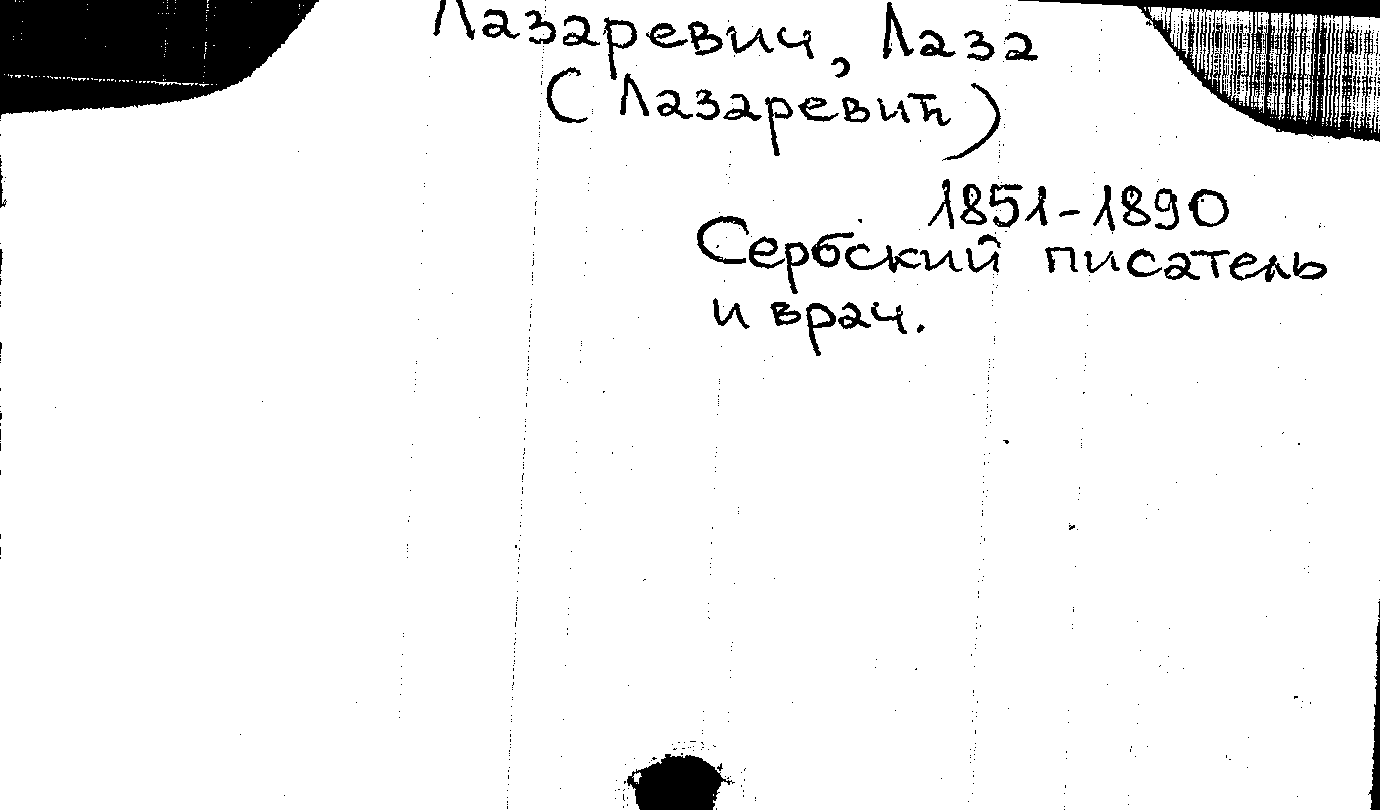 Лазаревич, Лаза
(Лазаревић)
1851-1890
Сербский писатель
и врач.